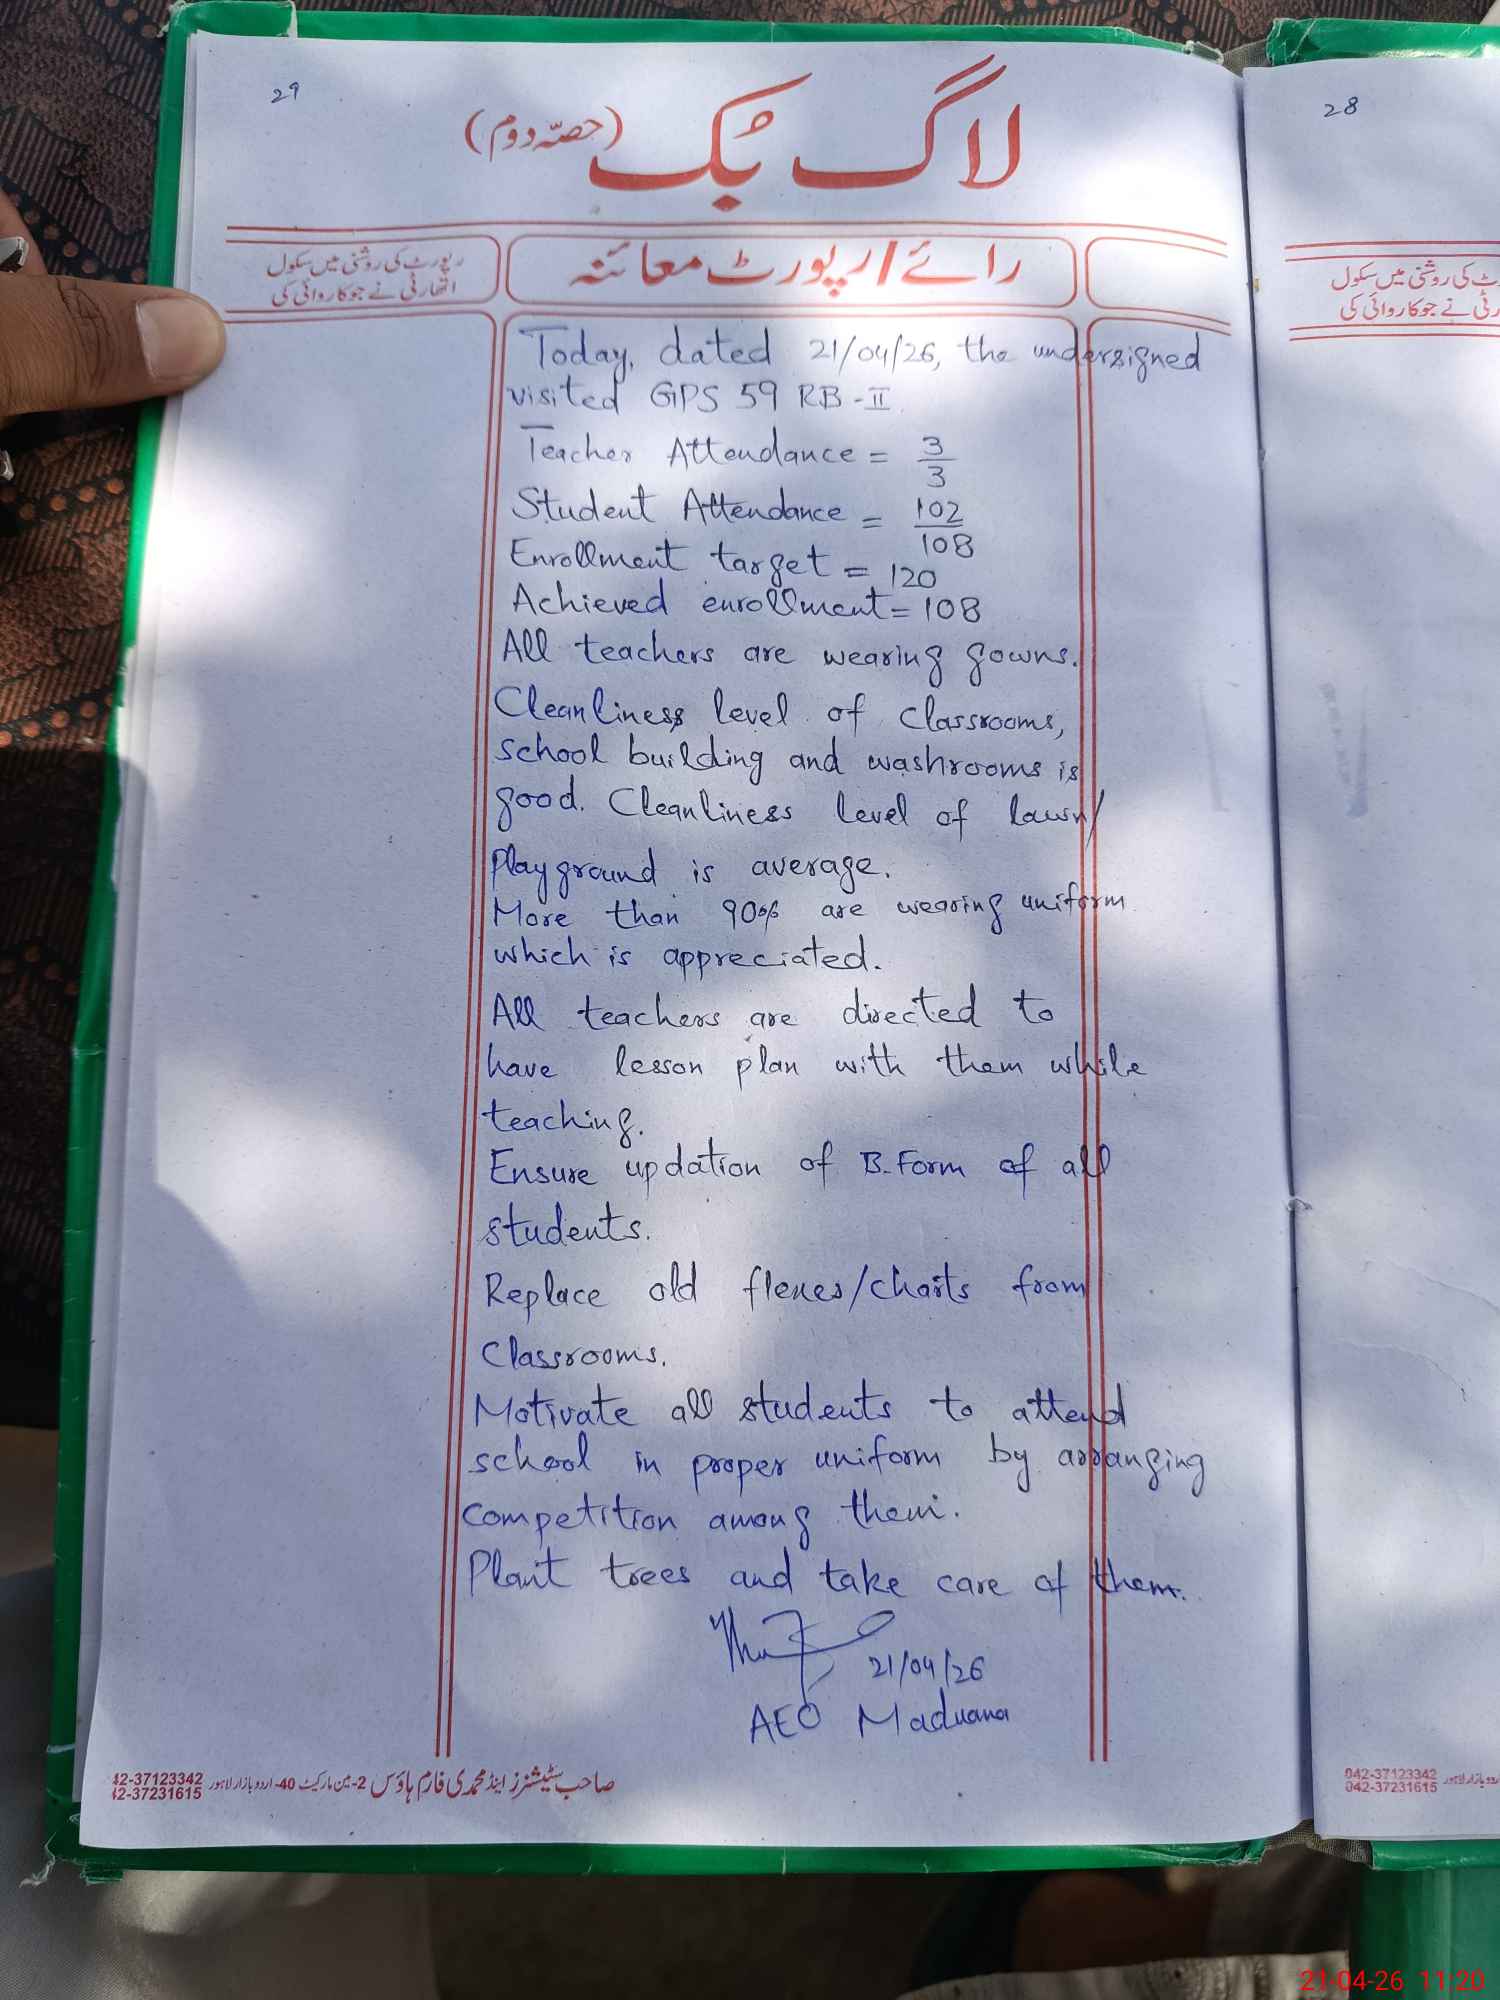 29
لاگ بُک (حصّہ دوم)
رائے/رپورٹ معائنہ
رپورٹ کی روشنی میں سکول
اتھارٹی نے جو کاروائی کی
Today, dated 21/04/26, the undersigned
visited GPS 59 RB-II
Teacher Attendance = 3/3
Student Attendance = 102/108
Enrollment target = 120
Achieved enrollment = 108
All teachers are wearing gowns.
Cleanliness level of classrooms,
school building and washrooms is
good. Cleanliness level of lawn/
playground is average.
More than 90% are wearing uniform
which is appreciated.
All teachers are directed to
have lesson plan with them while
teaching.
Ensure updation of B.Form of all
students.
Replace old flexes/charts from
classrooms.
Motivate all students to attend
school in proper uniform by arranging
competition among them.
Plant trees and take care of them.
21/04/26
AEO Maduana
صاحب سٹیشنرز اینڈ محمدی فارم ہاؤس 2-مین مارکیٹ 40-اردو بازار لاہور
42-37123342
42-37231615
28
رٹ کی روشنی میں سکول
رٹی نے جو کاروائی کی
042-37123342
042-37231615
اردو بازار لاہور
21-04-26 11:20